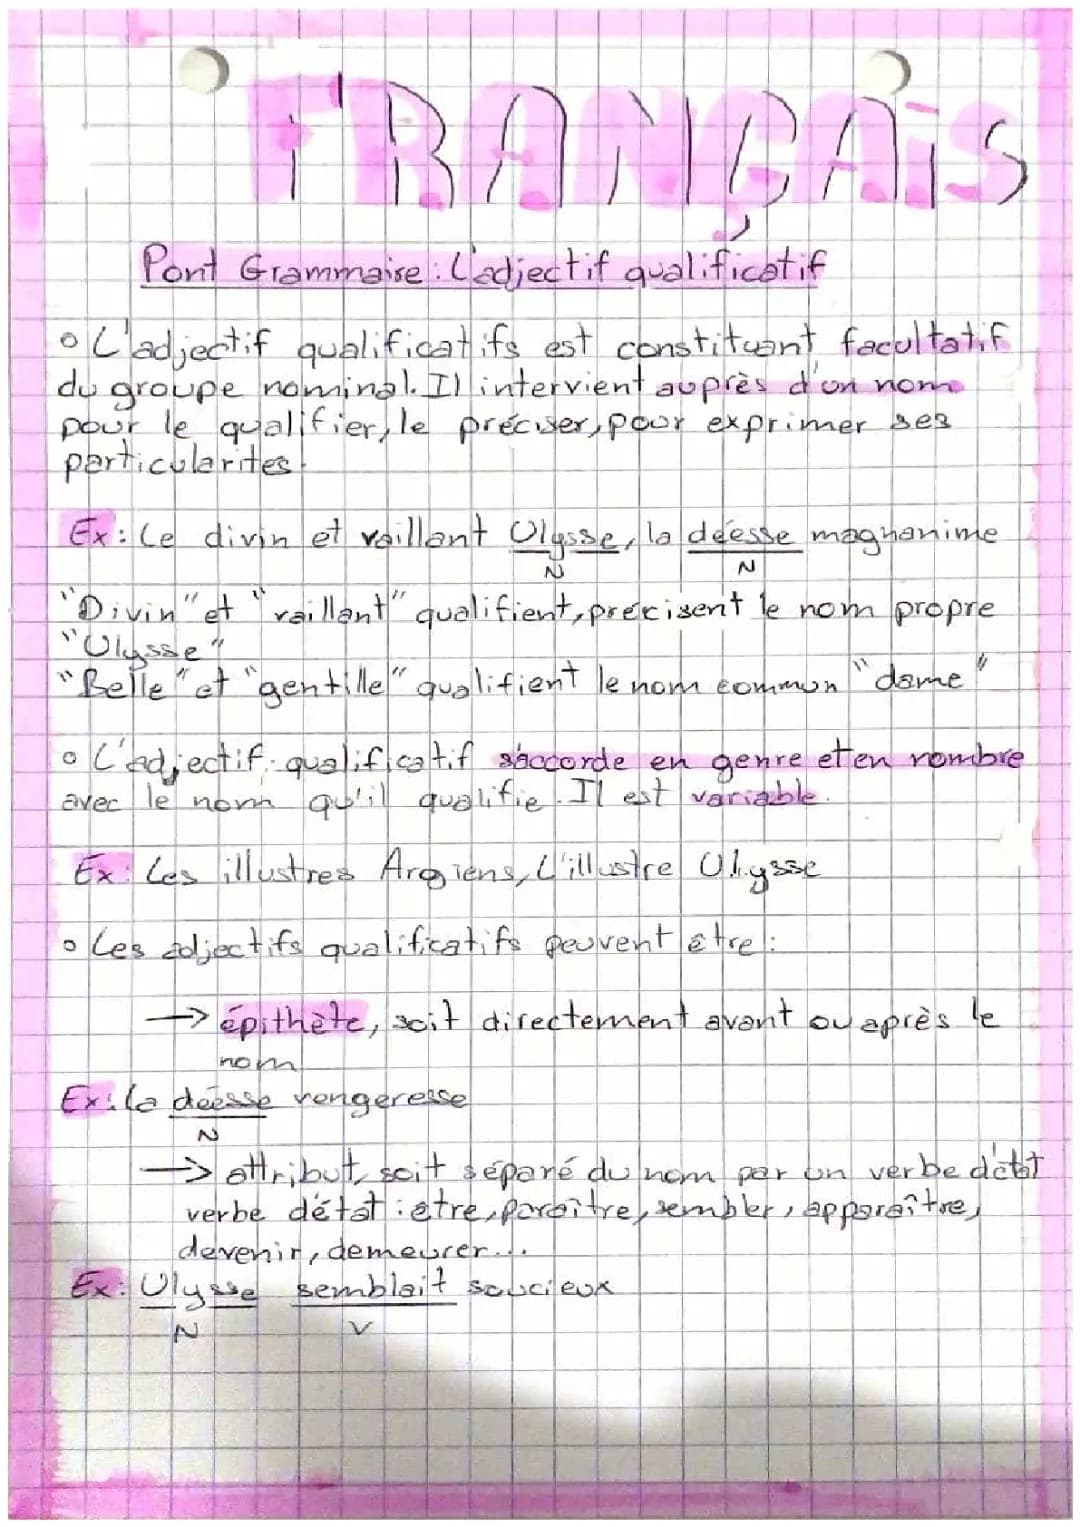 FRANÇAiS
Pont Grammaire : L'adjectif qualificatif
L'adjectif qualificatifs est constituant facultatif
du groupe nominal. Il intervient auprès d'un nom
pour le qualifier, le préciser, pour exprimer ses
particularites.
Ex : Le divin et vaillant Ulysse, la déesse magnanime
N N
"Divin" et "vaillant" qualifient, précisent le nom propre
"Ulysse"
"Belle" et "gentille" qualifient le nom commun "dame"
L'adjectif qualificatif s'accorde en genre et en nombre
avec le nom qu'il qualifie. Il est variable.
Ex : Les illustres Argiens, L'illustre Ulysse
Les adjectifs qualificatifs peuvent être :
→ épithète, soit directement avant ou après le
nom
Ex : la déesse vengeresse
N
→ attribut, soit séparé du nom par un verbe d'état
verbe d'état : etre, paraître, sembler, apparaître,
devenir, demeurer...
Ex : Ulysse semblait soucieux
N V